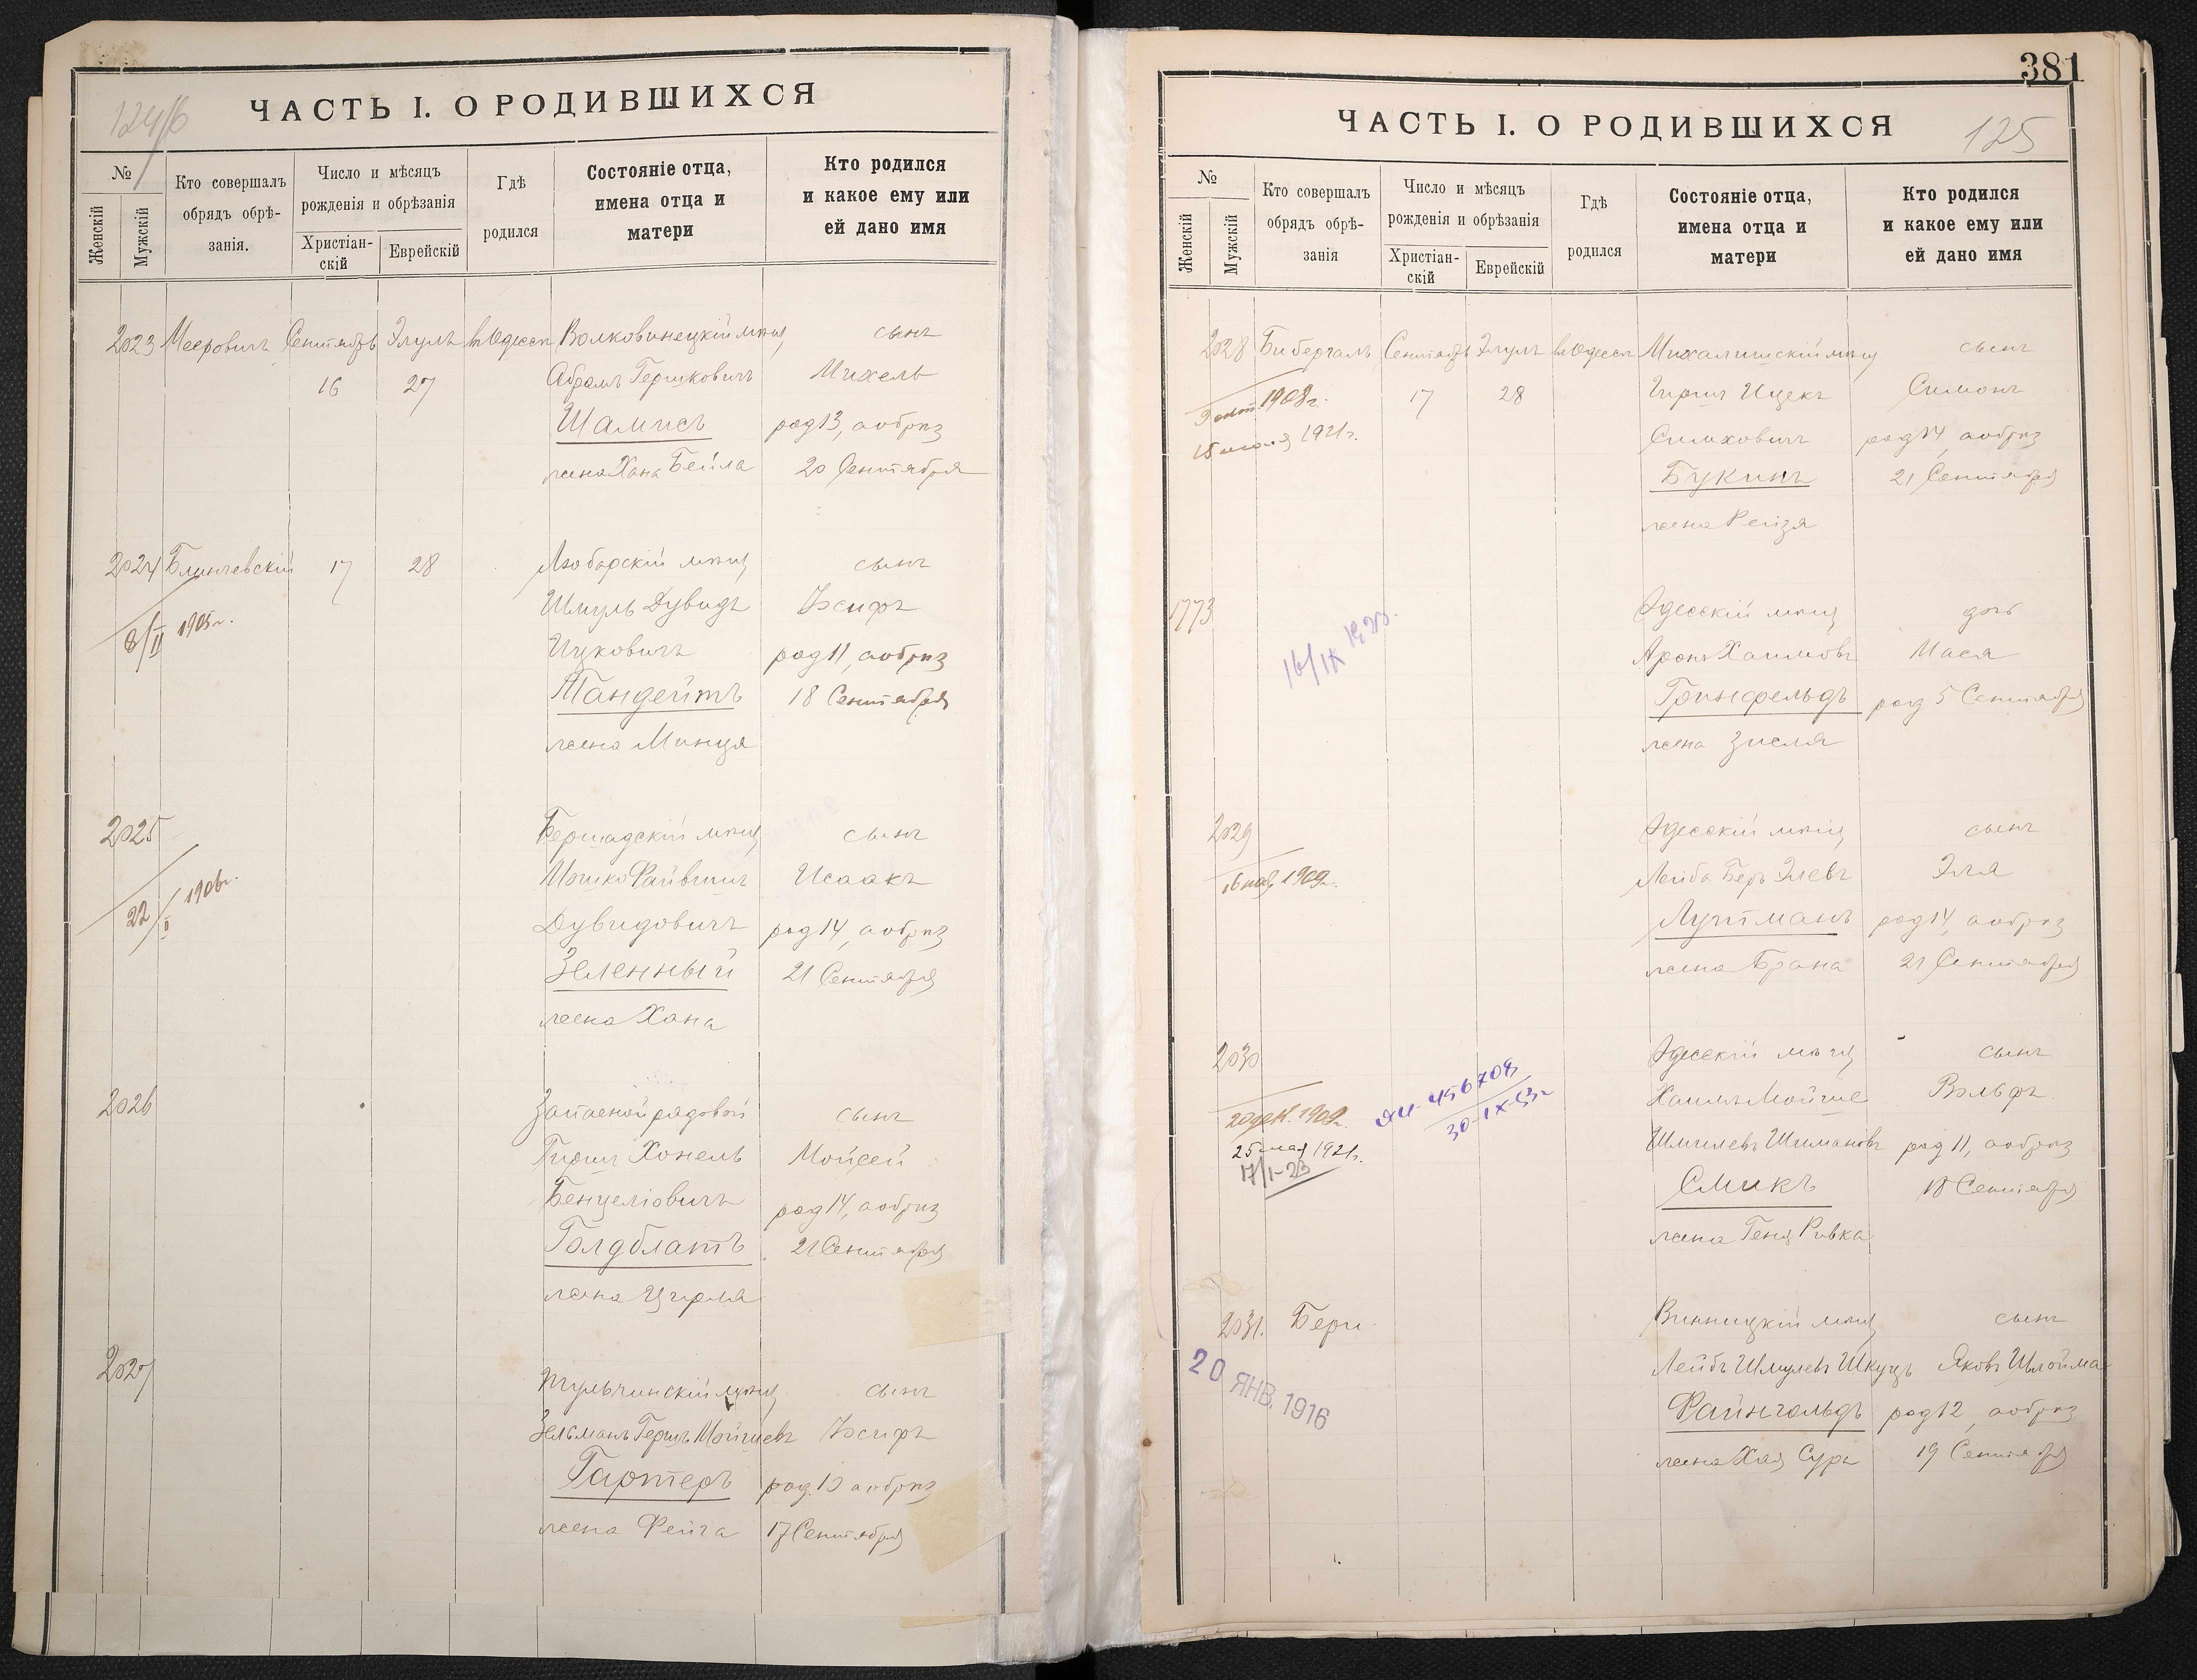 124/б
ЧАСТЬ I. О РОДИВШИХСЯ
№
Женскій
Мужскій
Кто совершалъ
обрядъ обрѣ-
занія.
Число и мѣсяцъ
рожденія и обрѣзанія
Христіан-
скій
Еврейскій
Гдѣ
родился
Состояніе отца,
имена отца и
матери
Кто родился
и какое ему или
ей дано имя
2023 Мееровичъ Сентябрь Элулъ въ Одессѣ Волковинецкій мѣщ сынъ
16 27 Абрамъ Гершковичъ Михель
Шамисъ род 13, а обрѣз
жена Хана Бейла 20 Сентября
2024 Блинчевскій 17 28 Любарскій мѣщ сынъ
8/II 1905г. Шмуль Дувидъ Іосифъ
Ицковичъ род 11, а обрѣз
Мандейтъ 18 Сентября
жена Минця
2025 Бершадскій мѣщ сынъ
22/II 1906г. Мошко Файвишъ Исаакъ
Дувидовичъ род 14, а обрѣз
Зеленный 21 Сентября
жена Хана
2026 Запасной рядовой сынъ
Гиршъ Хонель Мойсей
Бенцеліовичъ род 14, а обрѣз
Голдблатъ 21 Сентября
жена
2027 Тульчинскій мѣщ сынъ
Зельманъ Гершъ Мойшевъ Іосифъ
Гартеръ род. 10 а обрѣз
жена Фейга 17 Сентября
381
ЧАСТЬ I. О РОДИВШИХСЯ
125
№
Женскій
Мужскій
Кто совершалъ
обрядъ обрѣ-
занія
Число и мѣсяцъ
рожденія и обрѣзанія
Христіан-
скій
Еврейскій
Гдѣ
родился
Состояніе отца,
имена отца и
матери
Кто родился
и какое ему или
ей дано имя
2028 Бибергалъ Сентябрь Элулъ въ Одессѣ Михалишскій мѣщ сынъ
1908г. 17 28 Гиршъ Ицекъ Симонъ
15 1921г. Симховичъ род 14, а обрѣз
Букинъ 21 Сентября
жена Рейзя
1773 Одесскій мѣщ дочь
16/IX Аронъ Хаимовъ Мася
Гринфельдъ род 5 Сентября
жена Зисля
2029 Одесскій мѣщ сынъ
1909г. Лейба Беръ Элевъ Эля
Лупманъ род 14, а обрѣз
жена Брана 21 Сентября
2030 Одесскій мѣщ сынъ
20 дек. 1909г. 456708 Хаимъ Мойше Вольфъ
30-IX-53г
25 мая 1921г. Шмилевъ Шимановъ род 11, а обрѣз
17/I-23 Смикъ 18 Сентября
жена Геня Ривка
2031. Бери Винницкій мѣщ сынъ
20 ЯНВ. 1916 Лейбъ Шмулевъ Яковъ Шлойма
Файнгольдъ род 12, а обрѣз
жена Хая Сура 19 Сентября